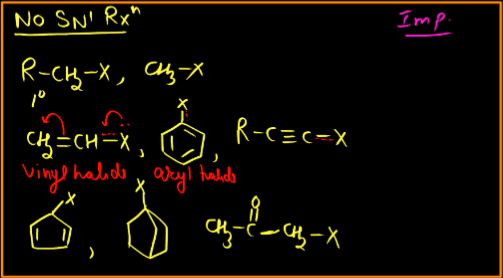 No SN¹ Rxⁿ
Imp.
R-CH₂-X, CH₃-X
1°
CH₂=CH-X, X, R-C≡C-X
Vinyl halide aryl halide
X, X
O
CH₃-C-CH₂-X